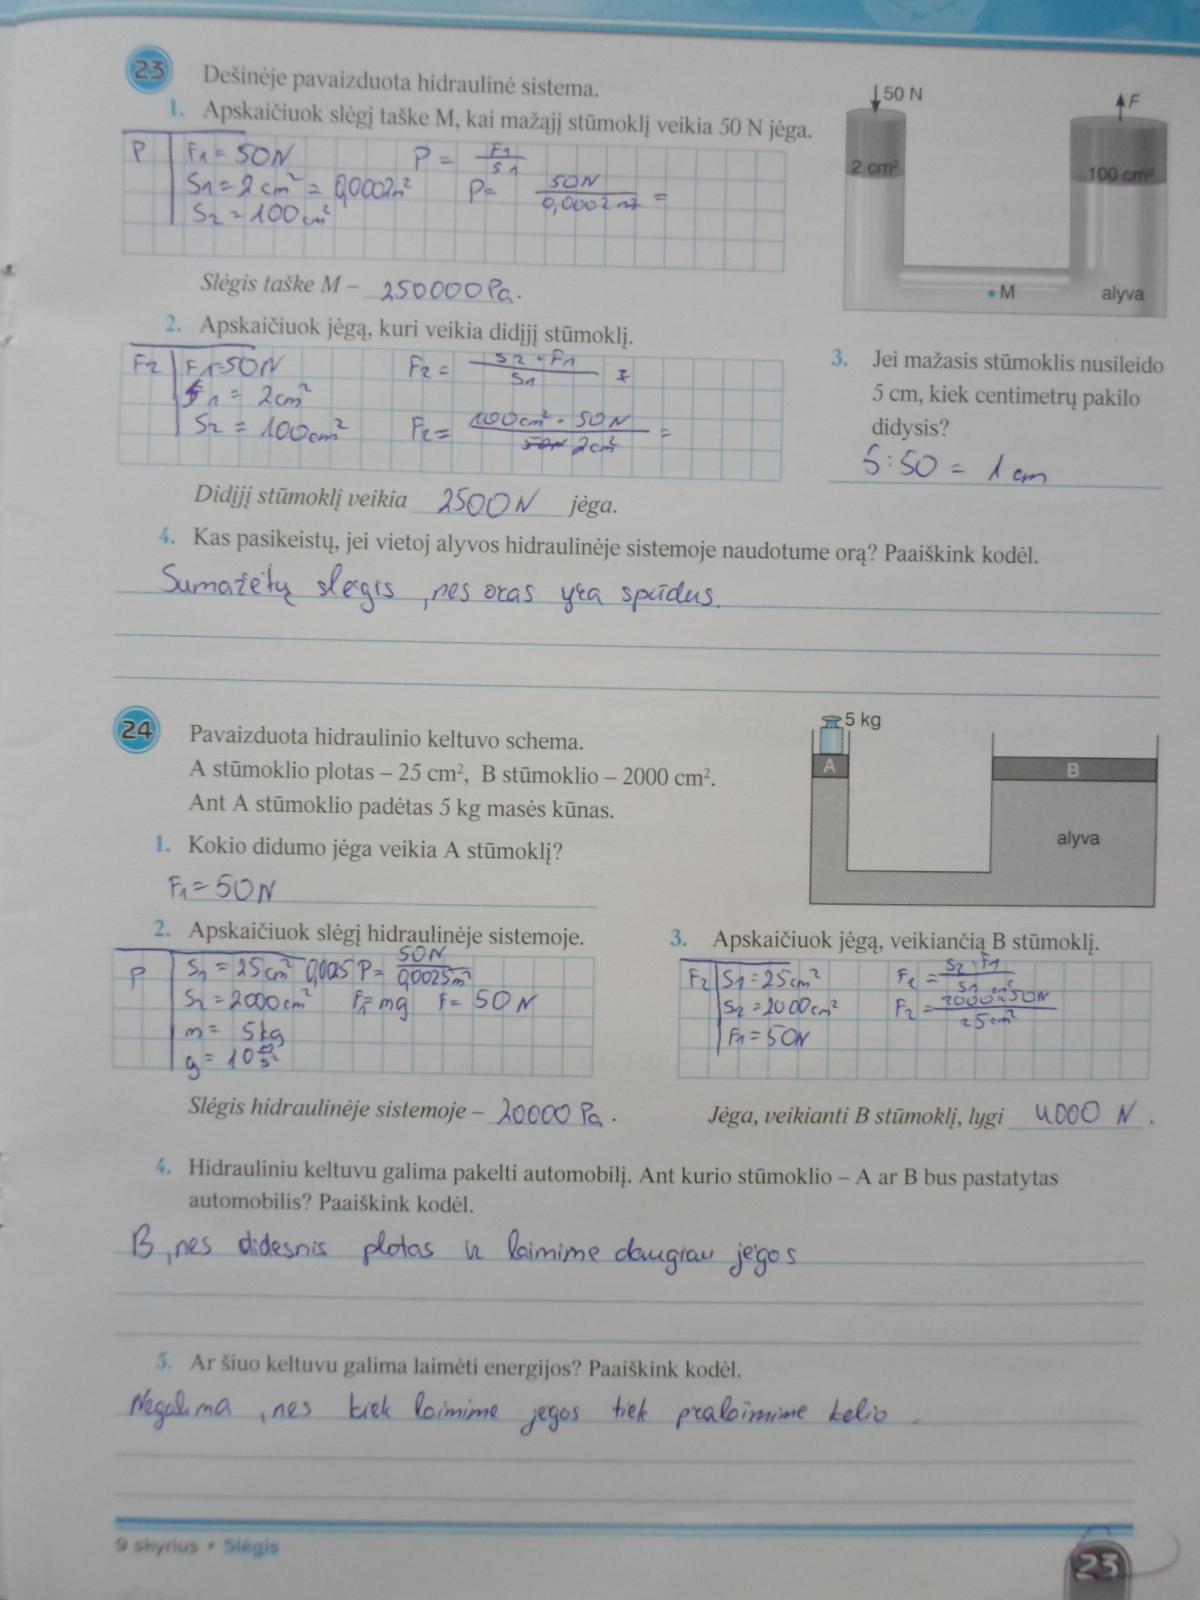 23 Dešinėje pavaizduota hidraulinė sistema.
1. Apskaičiuok slėgį taške M, kai mažąjį stūmoklį veikia 50 N jėga.
P F1 = 50N P = F1/S1
S1 = 2 cm² = 0,0002m² P = 50N/0,0002 m² =
S2 = 100cm²
Slėgis taške M – 250000Pa.
50 N
F
2 cm²
100 cm²
M
alyva
2. Apskaičiuok jėgą, kuri veikia didįjį stūmoklį.
F2 F1=50N F2 = S2 · F1/S1
S1 = 2cm²
S2 = 100cm² F2 = 100cm² · 50N/50N 2cm² =
Didįjį stūmoklį veikia 2500N jėga.
3. Jei mažasis stūmoklis nusileido
5 cm, kiek centimetrų pakilo
didysis?
5:50 = 1 cm
4. Kas pasikeistų, jei vietoj alyvos hidraulinėje sistemoje naudotume orą? Paaiškink kodėl.
Sumažėtų slėgis, nes oras yra spūdus.
24 Pavaizduota hidraulinio keltuvo schema.
A stūmoklio plotas – 25 cm², B stūmoklio – 2000 cm².
Ant A stūmoklio padėtas 5 kg masės kūnas.
5 kg
A
B
alyva
1. Kokio didumo jėga veikia A stūmoklį?
F1 = 50N
2. Apskaičiuok slėgį hidraulinėje sistemoje.
P S1 = 25cm² 0,0025 P = 50N/0,0025m²
S2 = 2000cm² F1 = mg F = 50N
m = 5kg
g = 10
Slėgis hidraulinėje sistemoje – 20000 Pa.
3. Apskaičiuok jėgą, veikiančią B stūmoklį.
F2 S1 = 25cm² F2 = S2 · F1/S1
S2 = 2000cm² F2 = 2000 · 50N/25cm²
F1 = 50N
Jėga, veikianti B stūmoklį, lygi 4000 N.
4. Hidrauliniu keltuvu galima pakelti automobilį. Ant kurio stūmoklio – A ar B bus pastatytas
automobilis? Paaiškink kodėl.
B, nes didesnis plotas ir laimime daugiau jėgos
5. Ar šiuo keltuvu galima laimėti energijos? Paaiškink kodėl.
Negalima, nes kiek laimime jėgos tiek pralaimime kelio.
9 skyrius • Slėgis
23